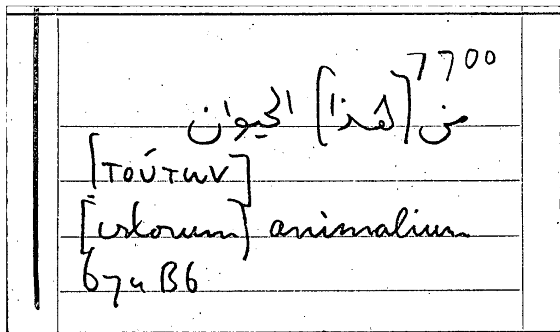 7700
من [هذا] الحيوان
[τούτων]
[istorum] animalium
67a B6